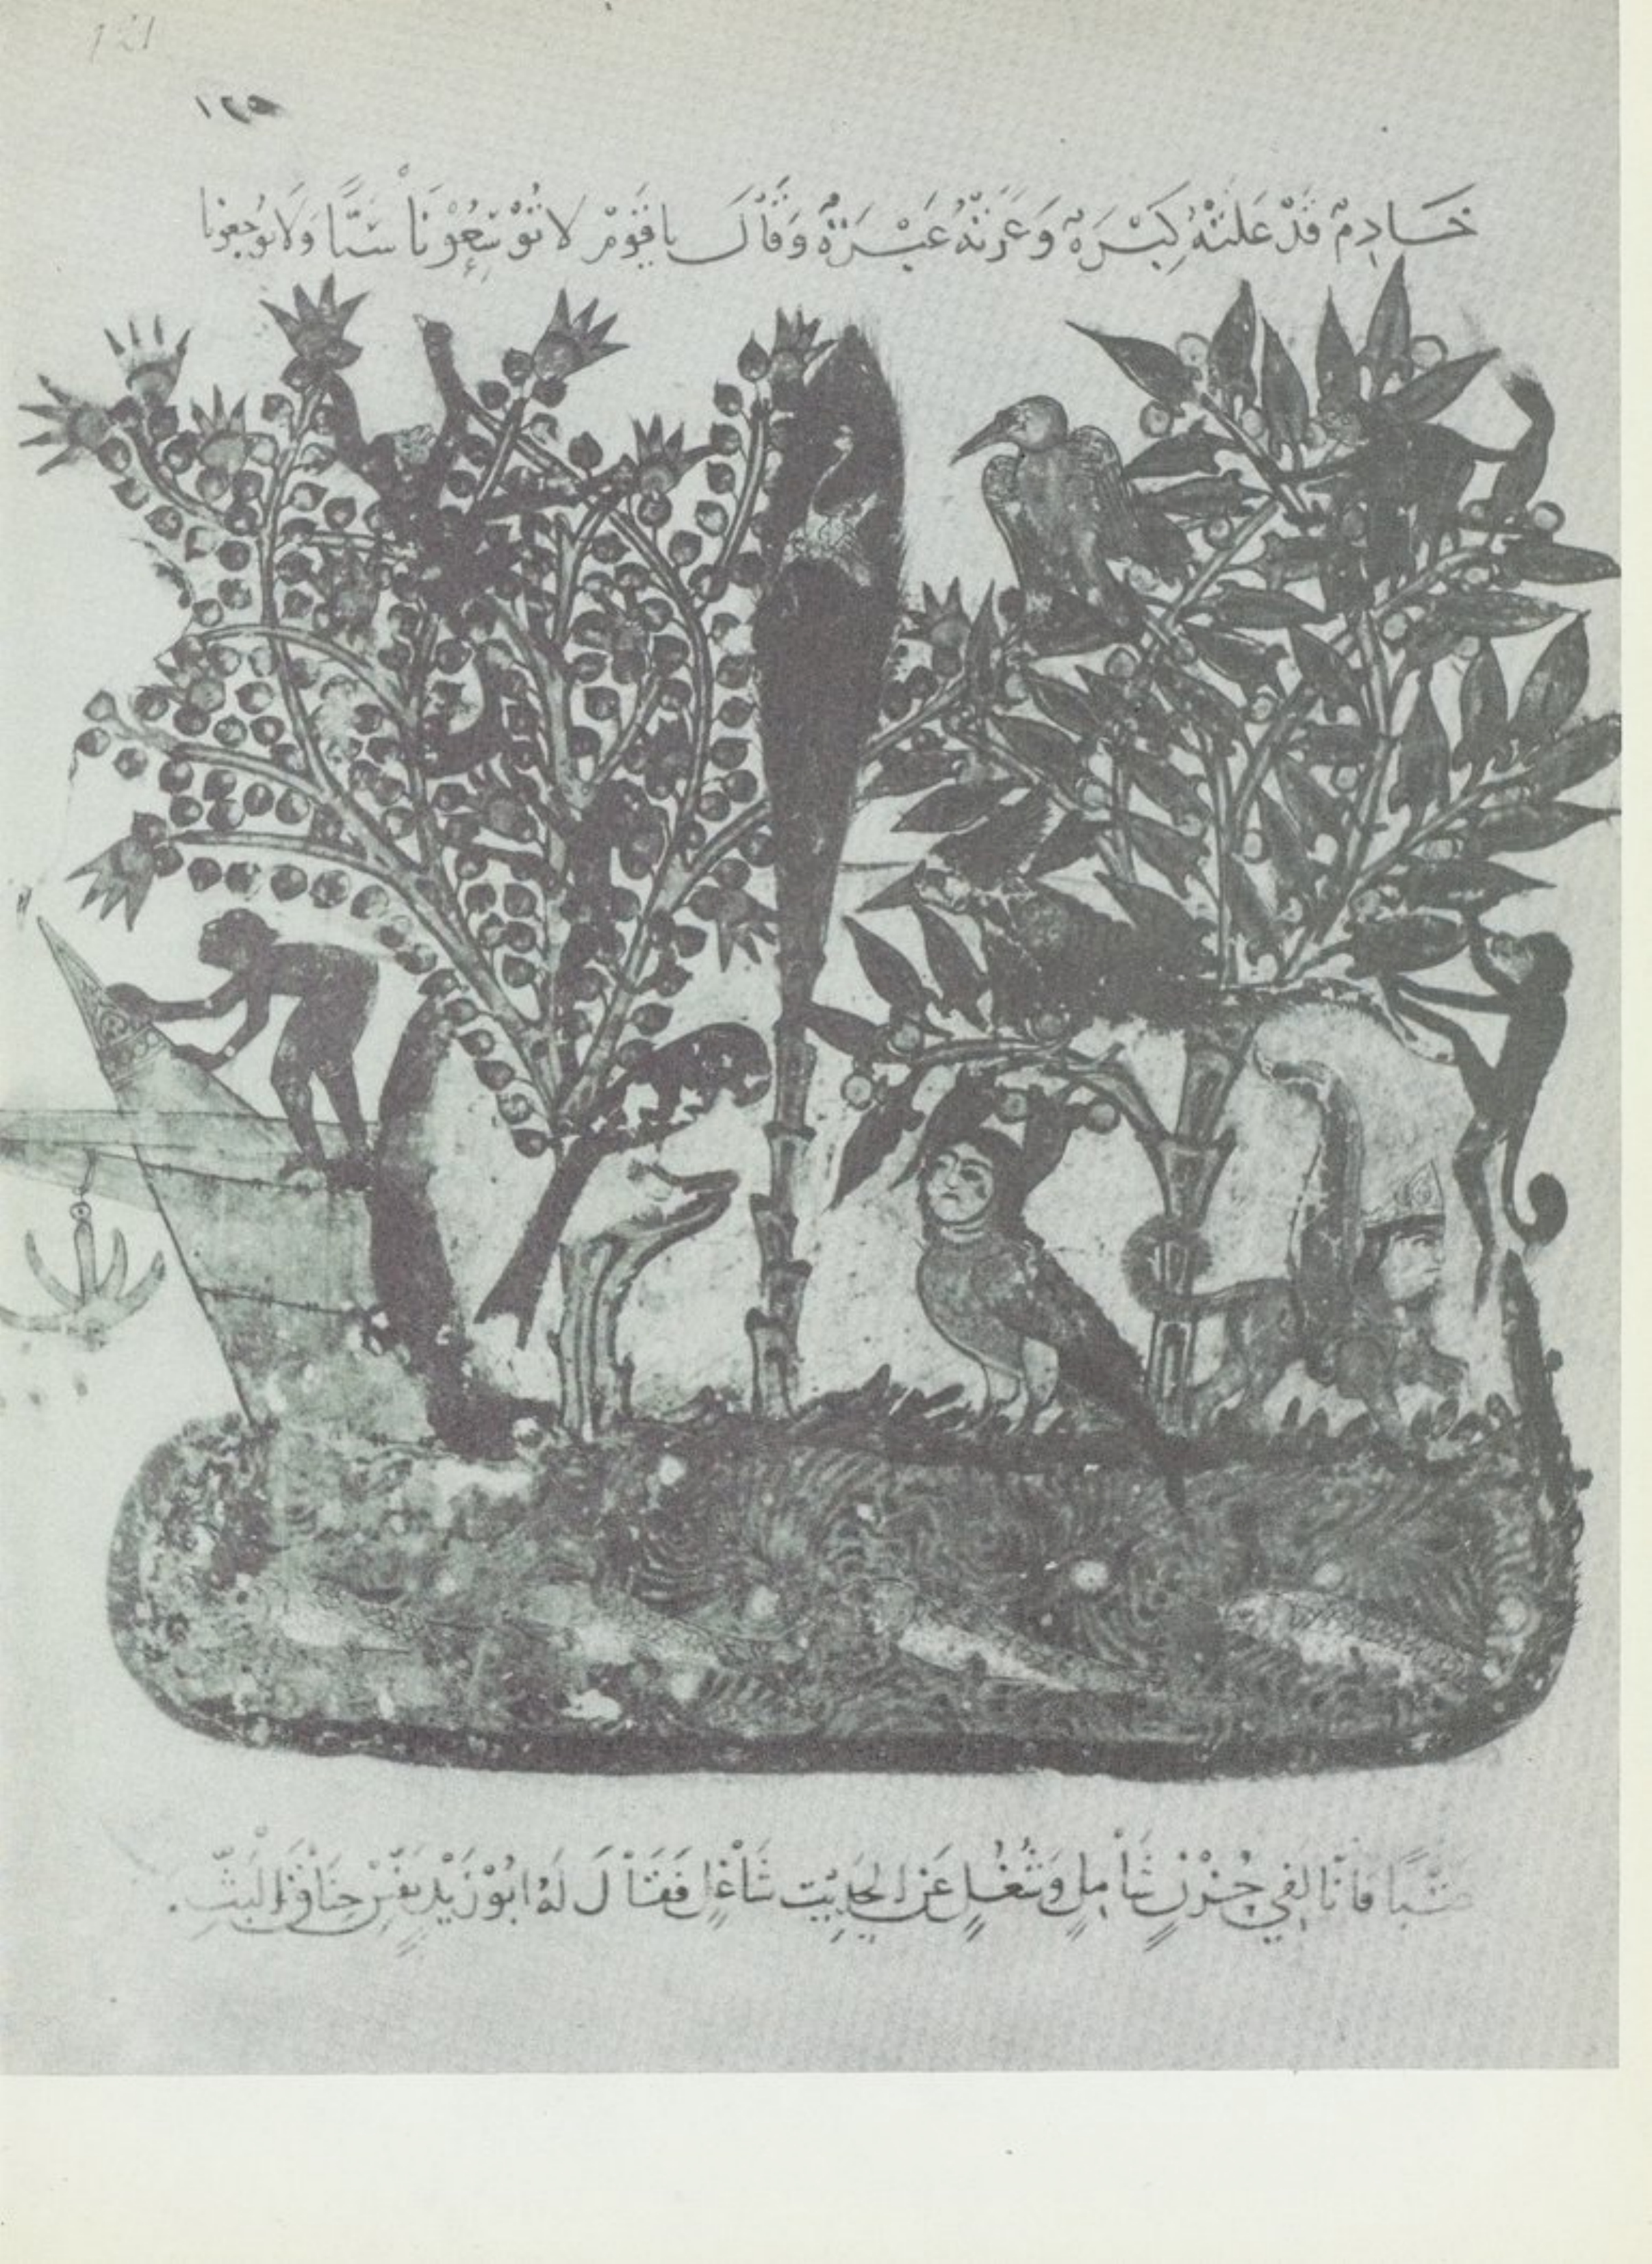 121
خَادِمٌ قَدْ عَلَتْهُ كِبْرَةٌ وَعَرَتْهُ عَبْرَةٌ وَقَالَ يا قَوْمِ لا تُوْسِعُوْنَا سَبًّا وَلا تُوجعونا
عَتْبًا فَاِنَّا لَفِي حُزْنٍ شَامِلٍ وَشُغْلٍ عَنِ الحَدِيْثِ شَاْغِلٍ فَقَالَ لَهُ ابُوْ زَيْدٍ نَفِّسْ خِنَاقَ البَثِّ.